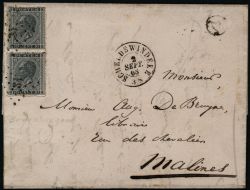 SCHELDEWINDEKE
2
SEPT.
Monsieur
Monsieur Aug. De Bruyne
libraire
Rue des chevaliers
Malines